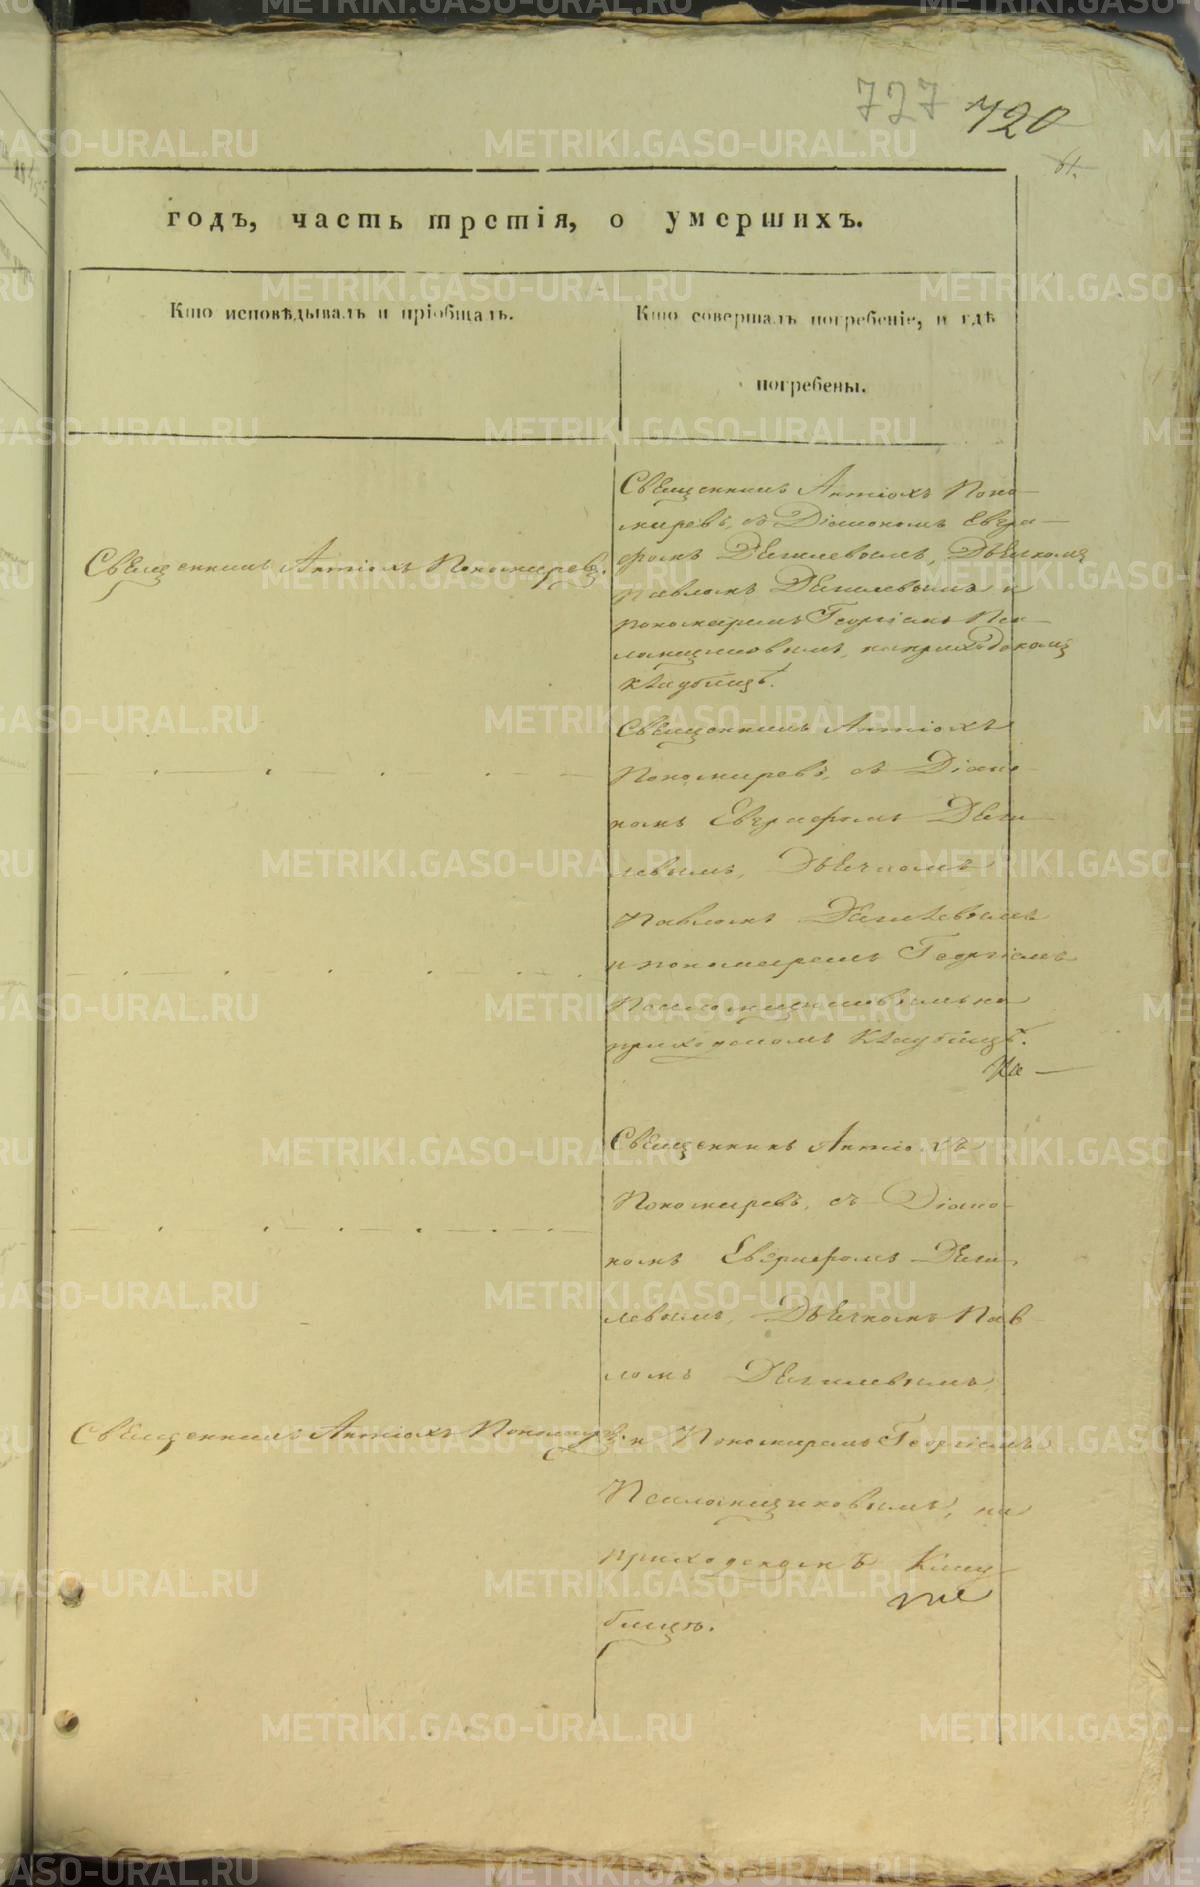 727 720
61.
годъ, часть третія, о умершихъ.
Кто исповѣдывалъ и пріобщалъ.
Кто совершалъ погребеніе, и гдѣ
погребены.
Священникъ Антіохъ Пономаревъ.
Священникъ Антіохъ Поно-
маревъ, съ Діакономъ Евгра-
фомъ Дягилевымъ, Дьячкомъ
Павломъ Дягилевымъ и
пономаремъ Георгіемъ Пса-
ломщиковымъ, на приходскомъ
кладбищѣ.
Священникъ Антіохъ
Пономаревъ, съ Діако-
номъ Евграфомъ Дяги-
левымъ, Дьячкомъ
Павломъ Дягилевымъ
и пономаремъ Георгіемъ
Псаломщиковымъ на
приходскомъ кладбищѣ.
Священникъ Антіохъ
Пономаревъ, съ Діако-
номъ Евграфомъ Дяги-
левымъ, Дьячкомъ Пав-
ломъ Дягилевымъ
Священникъ Антіохъ Пономаревъ.
и Пономаремъ Георгіемъ
Псаломщиковымъ, на
приходскомъ Клад-
бищѣ.
METRIKI.GASO-URAL.RU